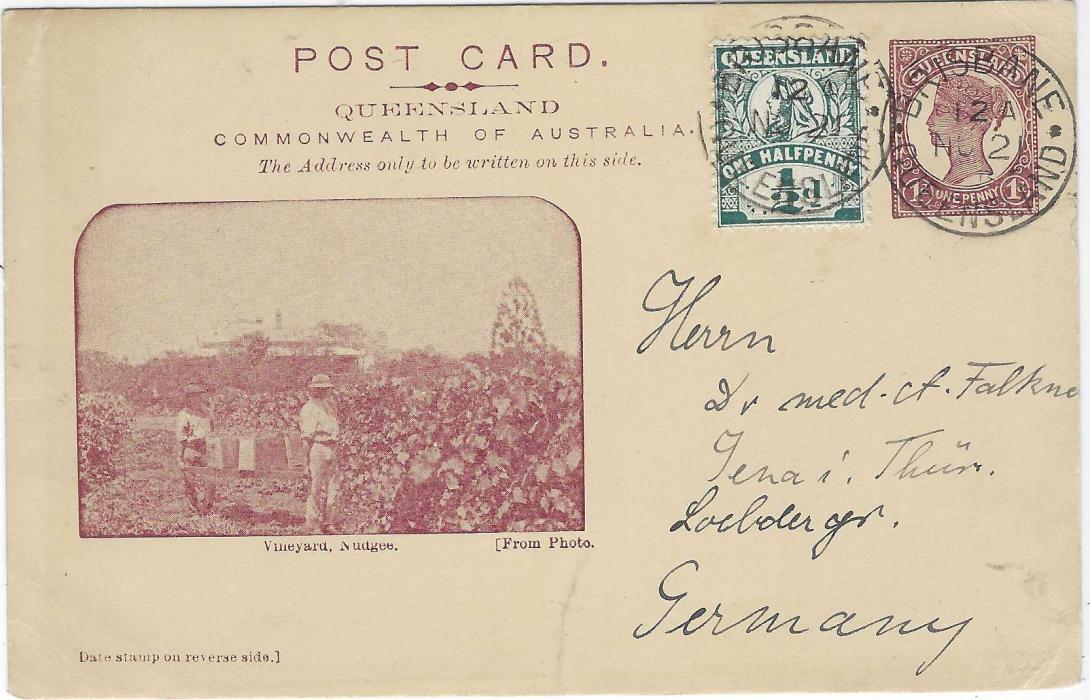 POST CARD.
QUEENSLAND
COMMONWEALTH OF AUSTRALIA.
The Address only to be written on this side.
QUEENSLAND
ONE HALFPENNY
½d
QUEENSLAND
1d ONE PENNY 1d
BRISBANE
12 A
NO 2
QUEENSLAND
Herrn
Dr med. A. Falkne
Jena i. Thür.
Germany
Vineyard, Nudgee.
[From Photo.
Date stamp on reverse side.]